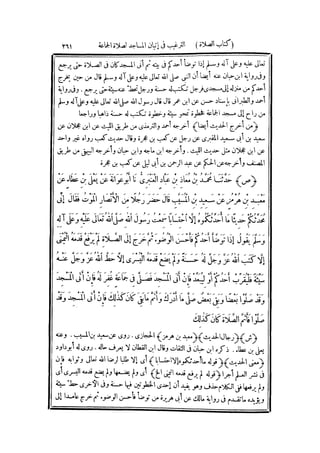 (كتاب الصلاة) الترغيب فى إتيان المساجد لصلاة الجماعة ٢٦١
تعالى عليه وعلى آله وسلم إذا توضأ أحدكم فى بيته ثم أتى المسجد كان فى الصلاة حتى يرجع
وفى رواية ابن حبان عنه أيضا أن النبى صلى الله تعالى عليه وعلى آله وسلم قال من حين يخرج
أحدكم من منزله إلى مسجدى فرجل تكتب له حسنة ورجل تحط عنه سيئة حتى يرجع . وفى رواية
أحمد والطبرانى بإسناد حسن عن ابن عمر قال قال رسول الله صلى الله تعالى عليه وعلى آله وسلم
من راح إلى مسجد الجماعة فخطوة تمحو سيئة وخطوة تكتب له حسنة ذاهبا وراجعا
﴿من أخرج الحديث أيضا﴾ أخرجه أحمد والترمذى من طريق الليث عن ابن عجلان عن
سعيد بن أبى سعيد المقبرى عن رجل عن كعب بن عجرة وقال حديث كعب رواه غير واحد
عن ابن عجلان مثل حديث الليث . وأخرجه ابن ماجه وابن حبان وأخرجه البيهقى من طريق
المصنف وأخرجه عن الحكم عن عبد الرحمن بن أبى ليلى عن كعب بن عجرة
﴿ص﴾ حدثنا محمد بن معاذ بن عباد العنبرى نا أبو عوانة عن يعلى بن عطاء عن
معبد بن هرمز عن سعيد بن المسيب قال حضر رجلا من الأنصار الموت فقال إنى
محدثكم حديثا ما أحدثكموه إلا احتسابا سمعت رسول الله صلى الله تعالى عليه وعلى آله
وسلم يقول إذا توضأ أحدكم فأحسن الوضوء ثم خرج إلى الصلاة لم يرفع قدمه اليمنى
إلا كتب الله عز وجل له حسنة ولم يضع قدمه اليسرى إلا حط الله عز وجل عنه
سيئة فليقرب أحدكم أو ليبعد فإن أتى المسجد فصلى فى جماعة غفر له فإن أتى المسجد
وقد صلوا بعضا وبقى بعض صلى ما أدرك وأتم ما بقى كان كذلك فإن أتى المسجد وقد
صلوا فأتم الصلاة كان كذلك
﴿ش﴾ ﴿رجال الحديث﴾ ﴿معبد بن هرمز﴾ الحجازى . روى عن سعيد بن المسيب . وعنه
يعلى بن عطاء . ذكره ابن حبان فى الثقات وقال ابن القطان لا يعرف حاله . روى له أبو داود
﴿معنى الحديث﴾ ﴿قوله ما أحدثكموه إلا احتسابا﴾ أى إلا طلبا لرضا الله تعالى وثوابه فإن
فى نشر العلم أجرا ﴿قوله لم يرفع قدمه اليمنى الخ﴾ أى ولم يضعها ولم يضع قدمه اليسرى أى
ولم يرفعها ففى الكلام حذف وهو يفيد أن إحدى الخطوتين فيها حسنة وفى الأخرى حط سيئة
ويؤيده ما تقدم فى رواية مالك عن أبى هريرة من توضأ فأحسن الوضوء ثم خرج عامدا إلى